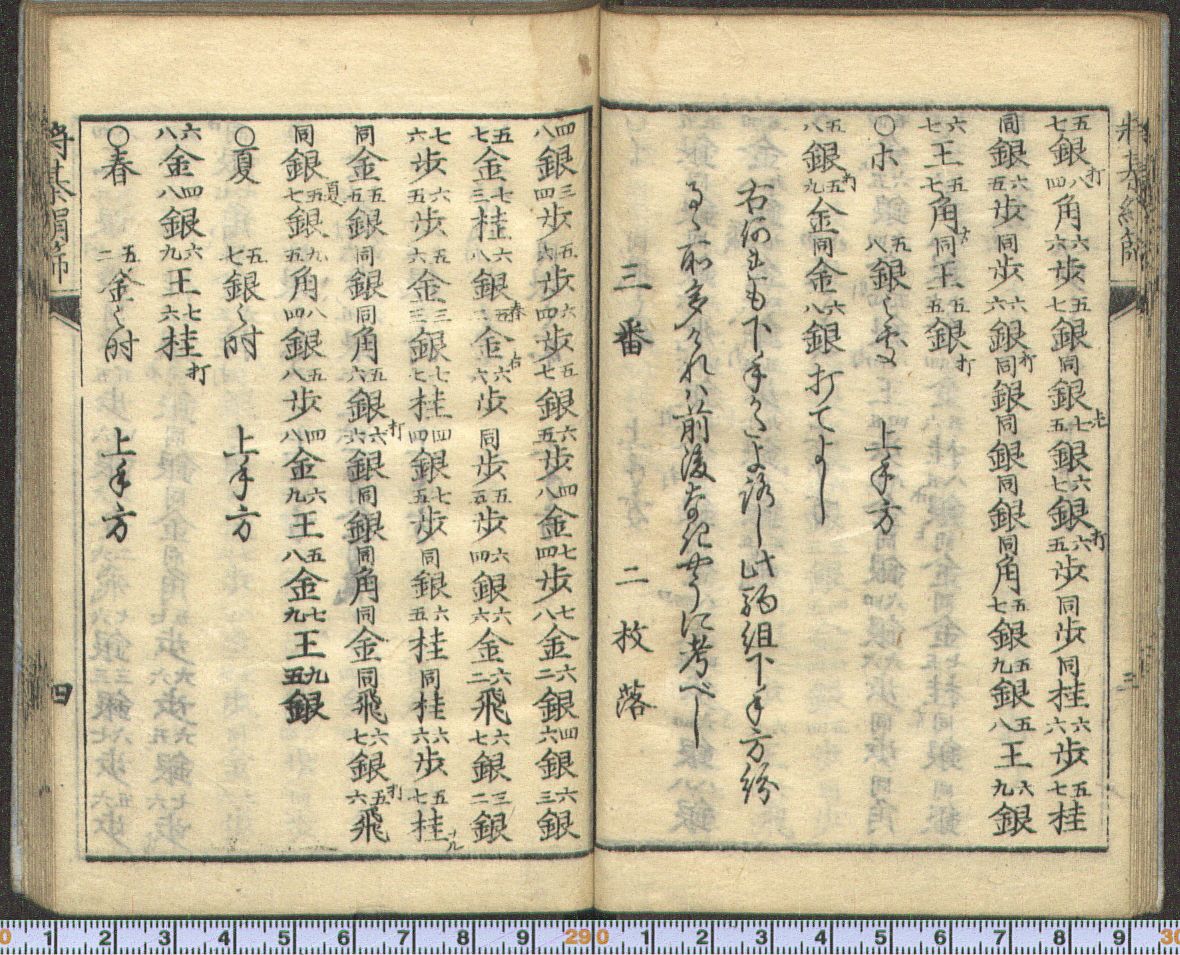 将棊絹篩 三
五七銀打 八四角 六六歩 五七銀 同銀 七五銀 六七銀打 六五歩 同歩 同桂 六六歩 五七桂
同銀 六五歩 同歩 六六銀打 同銀 同銀 同角 五七銀 五九銀 五八王 六九銀
六七王 五七角 同王 五五銀打
〇ホ 五八銀之変 上手方
五八銀打 五九金 同金 六八銀打てよし
右何出も下手かたよろし此駒組下手方紛
るゝ所多けれハ前後なきやうに考べし
三番 二枚落
四八銀 三四歩 五六歩 六四歩 五七銀 六五歩 四八金 七四歩 七八金 六二銀 四六銀 六三銀
五七金 七三桂 六八銀 五二金春右 六六歩 同歩 五五歩 六四銀 六六金 六二飛 六七銀 三二銀
七六歩 六五歩 五六金 三三銀 七七桂 四四銀 七五歩 同銀 六五桂 同桂 六六歩 五七桂ナル
同金 五五銀 同銀 同角 五六銀打 六六銀 同銀 同角 同金 同飛 六七銀打 五六飛
同銀 五七銀夏 九五角 八四銀 五八歩 四八金 六九王 五八金 七九王 九五銀
〇夏 五七銀之時 上手方
六八金 四八銀 六九王 七六桂打
〇春 五二金之時 上手方
将棊絹篩 四